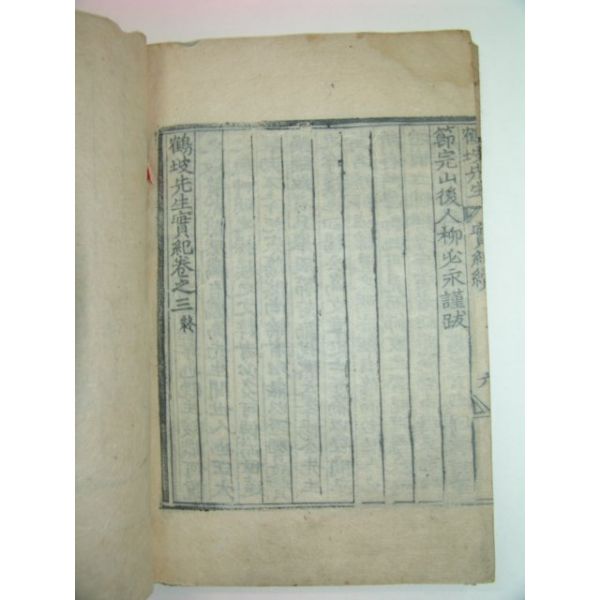 鶴坡先生實紀
六
節完山後人柳必永謹跋
鶴坡先生實紀卷之三 終